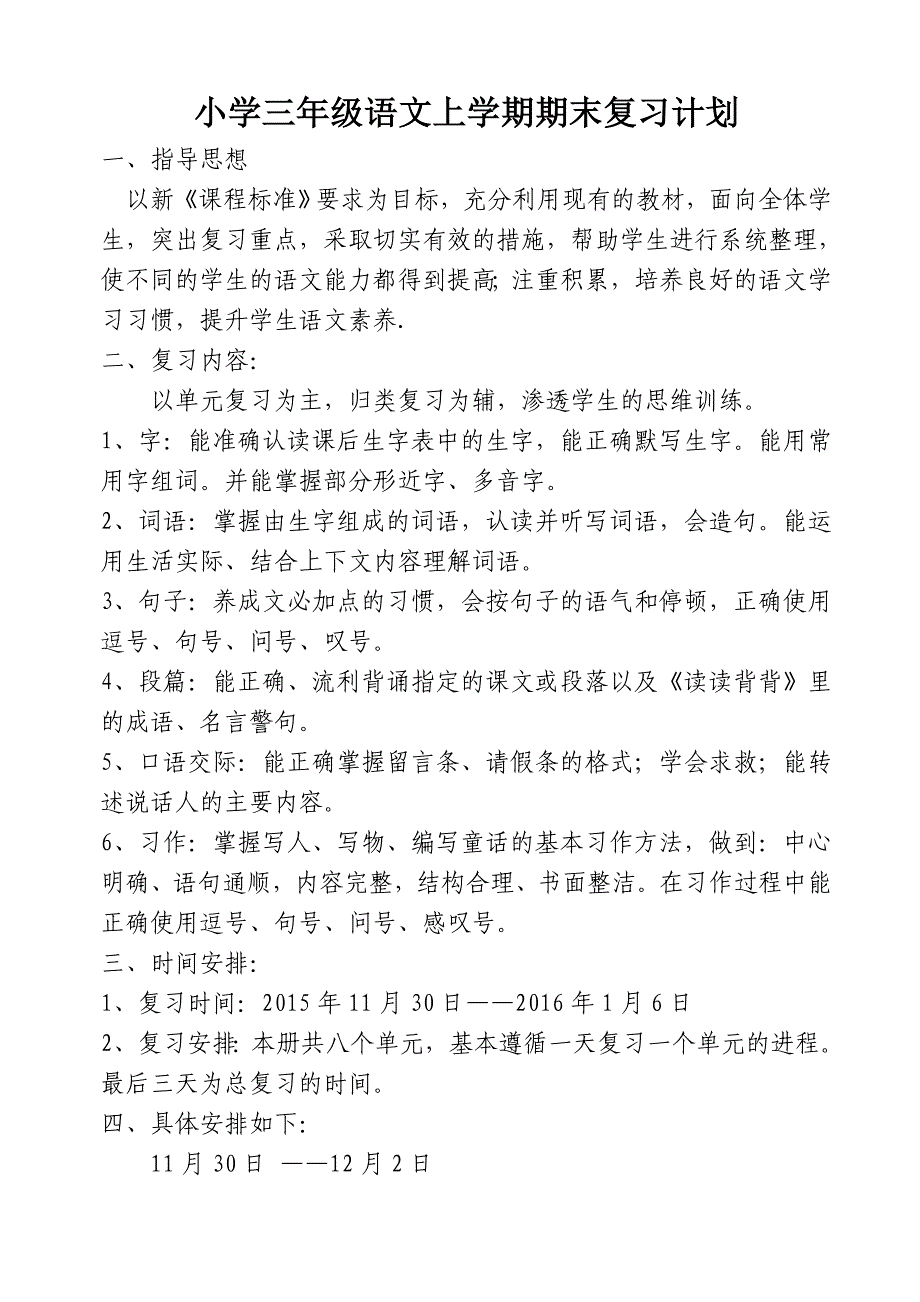 小学三年级语文上学期期末复习计划
一、指导思想
以新《课程标准》要求为目标，充分利用现有的教材，面向全体学
生，突出复习重点，采取切实有效的措施，帮助学生进行系统整理，
使不同的学生的语文能力都得到提高；注重积累，培养良好的语文学
习习惯，提升学生语文素养.
二、复习内容：
以单元复习为主，归类复习为辅，渗透学生的思维训练。
1、字：能准确认读课后生字表中的生字，能正确默写生字。能用常
用字组词。并能掌握部分形近字、多音字。
2、词语：掌握由生字组成的词语，认读并听写词语，会造句。能运
用生活实际、结合上下文内容理解词语。
3、句子：养成文必加点的习惯，会按句子的语气和停顿，正确使用
逗号、句号、问号、叹号。
4、段篇：能正确、流利背诵指定的课文或段落以及《读读背背》里
的成语、名言警句。
5、口语交际：能正确掌握留言条、请假条的格式；学会求救；能转
述说话人的主要内容。
6、习作：掌握写人、写物、编写童话的基本习作方法，做到：中心
明确、语句通顺，内容完整，结构合理、书面整洁。在习作过程中能
正确使用逗号、句号、问号、感叹号。
三、时间安排：
1、复习时间：2015年11月30日——2016年1月6日
2、复习安排：本册共八个单元，基本遵循一天复习一个单元的进程。
最后三天为总复习的时间。
四、具体安排如下：
11月30日 ——12月2日